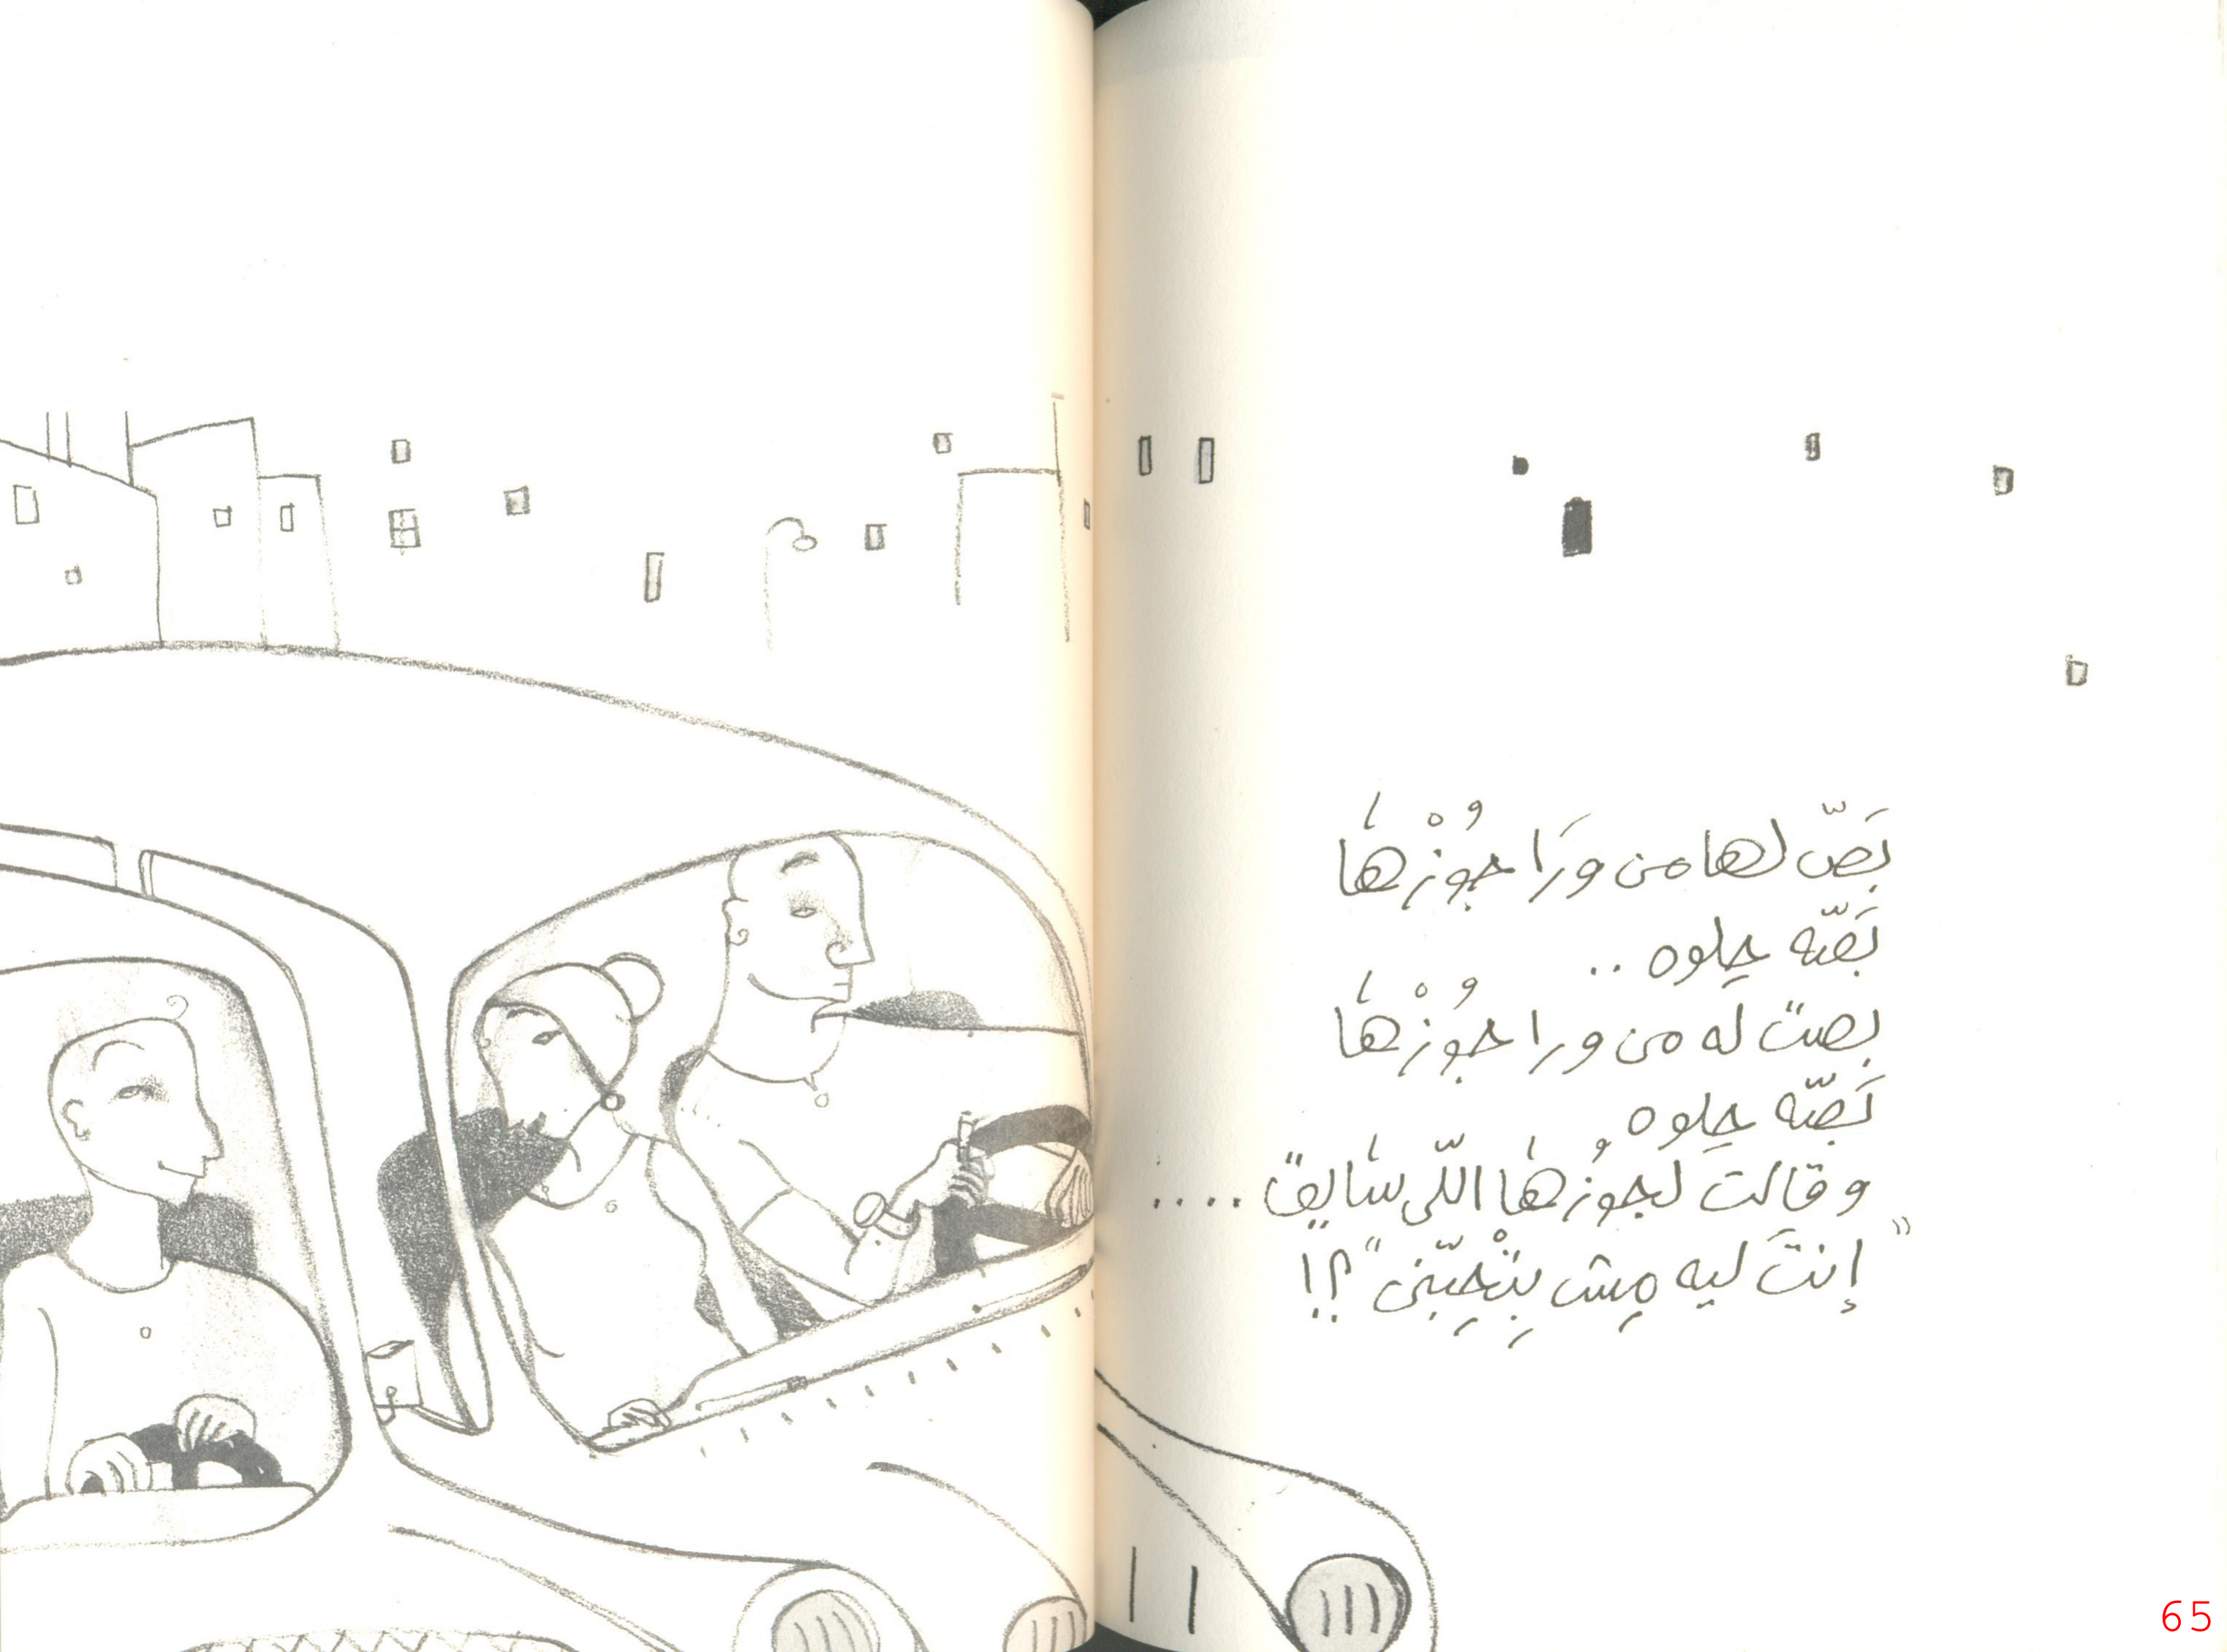 بَصّ لها من ورَا جُوْزْهَا
بَصّه حِلوه ..
بصت له من ورا جُوْزْهَا
بَصّه حِلوه
وقالت لجُوزهَا اللّى سَايق ....
"إنتَ ليه مِش بِتْحِبّنى" ؟!
65